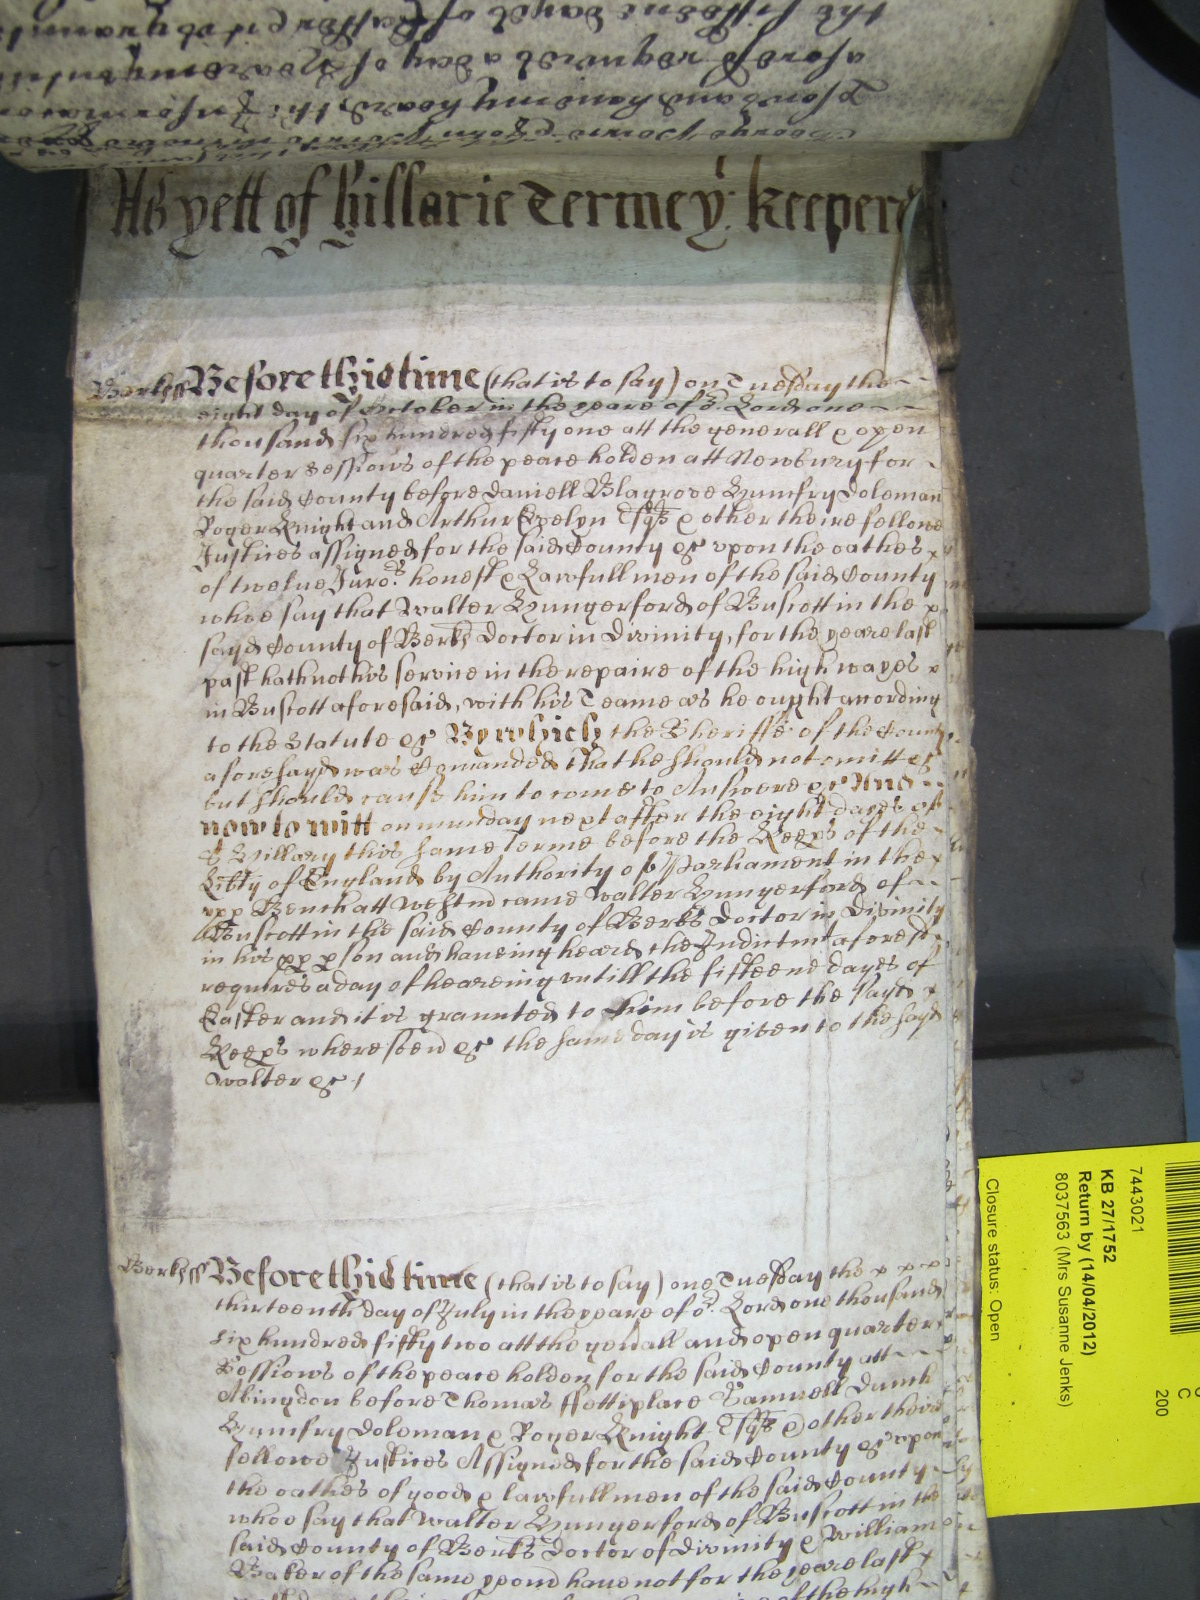 As yett of Hillarie Terme ye Keepers
Berks ss Before this time (that is to say) on Tuesday the
eight day of October in the yeare of or Lord one
thousand six hundred fifty one att the generall & open
quarter Sessions of the peace holden att Newbury for
the said County before Daniell Blagrove Humfry Doleman
Roger Knight and Arthur Evelyn Esqs & other theire fellowe
Justices assigned for the said County &c vpon the oathes
of twelue Juro.rs honest & Lawfull men of the said County
whoe say that Walter Hungerford of Buscott in the
sayd County of Berks Doctor in Divinity, for the yeare last
past hath not his service in the repaire of the high wayes
in Buscott aforesaid, with his Teame as he ought according
to the Statute &c By which the Sheriffe of the County
aforesayd was Comanded that he should not omitt &c
but should cause him to come to Answere &c And
now to witt on munday next after the eight dayes of
St Hillary this same Terme before the Keeps of the
Libty of England by Authority of Parliament in the
vpp Bench att Westm came Walter Hungerford of
Buscott in the said County of Berks Doctor in Divinity
in his pp pson and haueing heard the Indictmt aforesd
requires a day of heareing vntill the fifteene dayes of
Easter and it is graunted to him before the sayd
Keeps wheresoeu &c the same day is given to the sayd
Walter &c /
Berks ss Before this time (that is to say) one Tuesday the
thirteenth day of July in the yeare of or Lord one thousand
six hundred fifty two att the genall and open quarter
Sessions of the peace holden for the said County att
Abingdon before Thomas ffettiplace Samuell Dunch
Humfry Doleman & Roger Knight Esqs & other theire
fellowe Justices Assigned for the said County &c vpon
the oathes of good & lawfull men of the said County
whoe say that Walter Hungerford of Buscott in the
said County of Berks Doctor of divinity & William
Baker of the same yeom haue not for the yeare last
of the high
7443021
KB 27/1752
Return by (14/04/2012)
8037563 (Mrs Susanne Jenks)
Closure status: Open
C
200